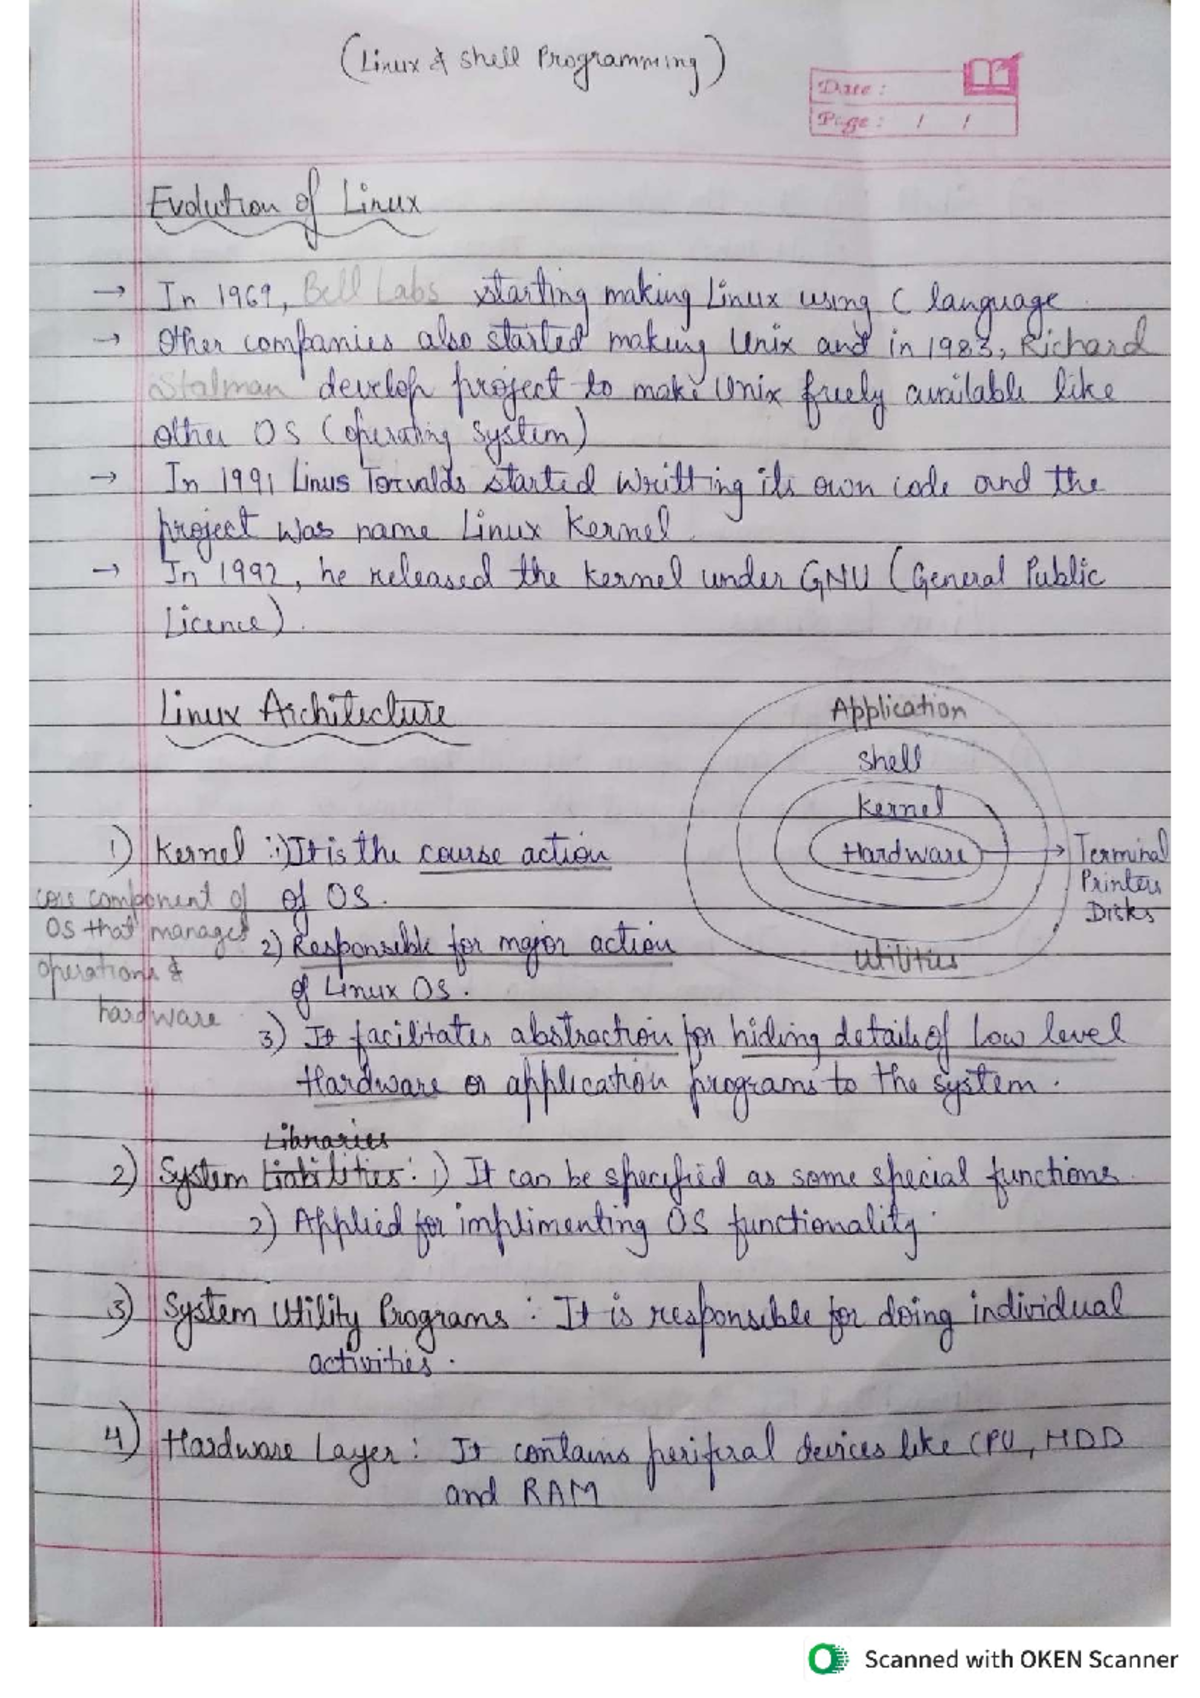 (Linux & Shell Programming)
Date :
Page : / /
Evolution of Linux
→ In 1969, Bell Labs starting making Linux using C language
→ Other companies also started making Unix and in 1983, Richard
Stalman develop project to make Unix freely available like
other OS (operating system)
→ In 1991 Linus Torvalds started writting its own code and the
project was name Linux Kernel
→ In 1992, he released the kernel under GNU (General Public
Licence).
Linux Architecture
Application
Shell
Kernel
Hardware
→ Terminal
Printers
Disks
Utilities
1) Kernel : 1) It is the course action
of OS.
core component of
OS that manages
operations &
hardware
2) Responsible for major action
of Linux OS.
3) It facilitates abstraction for hiding details of Low level
Hardware or application programs to the system.
Libraries
2) System Liabilities : 1) It can be specified as some special functions.
2) Applied for implimenting OS functionality.
3) System Utility Programs : It is responsible for doing individual
activities.
4) Hardware Layer : It contains periferal devices like CPU, HDD
and RAM
Scanned with OKEN Scanner